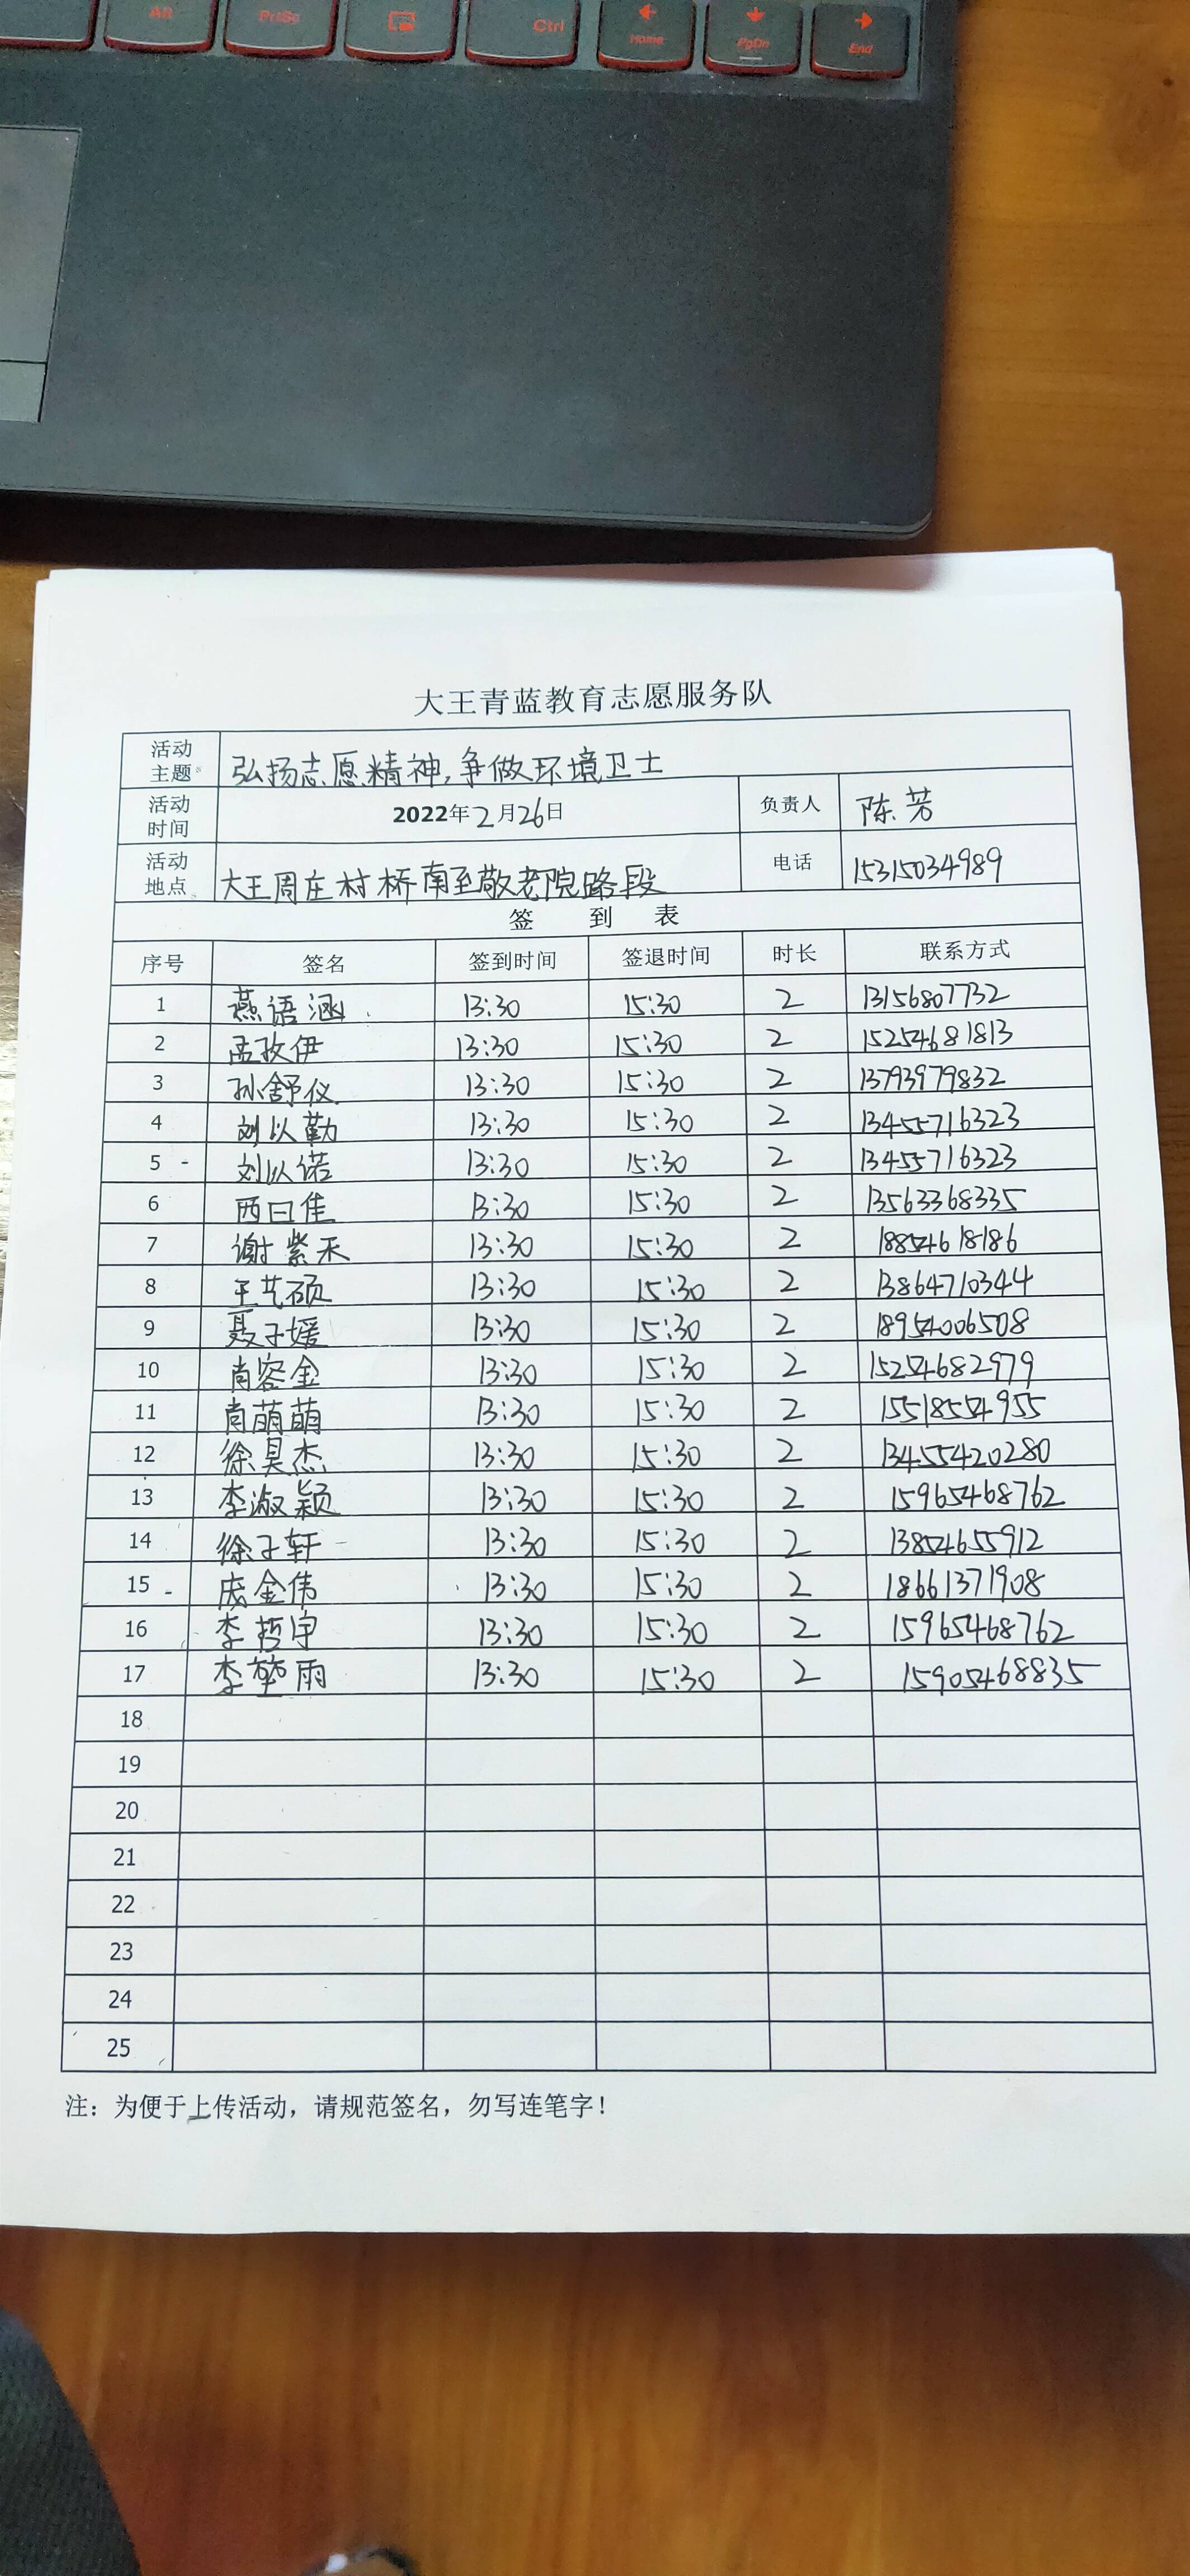 Alt PrtSc Ctrl Home PgDn End
大王青蓝教育志愿服务队
活动主题 弘扬志愿精神,争做环境卫士
活动时间 2022年2月26日 负责人 陈芳
活动地点 大王周庄村桥南至敬老院路段 电话 15315034989
签 到 表
序号 签名 签到时间 签退时间 时长 联系方式
1 燕语涵 13:30 15:30 2 13156807732
2 孟孜伊 13:30 15:30 2 15254681813
3 孙舒仪 13:30 15:30 2 13793979832
4 刘以勤 13:30 15:30 2 13455716323
5 刘以诺 13:30 15:30 2 13455716323
6 西曰佳 13:30 15:30 2 13563368335
7 谢紫禾 13:30 15:30 2 18854618186
8 王艺硕 13:30 15:30 2 13864710344
9 聂子媛 13:30 15:30 2 18954006508
10 肖容金 13:30 15:30 2 15254682979
11 肖萌萌 13:30 15:30 2 15518554955
12 徐昊杰 13:30 15:30 2 13455420280
13 李淑颖 13:30 15:30 2 15965468762
14 徐子轩 13:30 15:30 2 13854655912
15 庞金伟 13:30 15:30 2 18661371908
16 李哲宇 13:30 15:30 2 15965468762
17 李 雨 13:30 15:30 2 15905468835
18
19
20
21
22
23
24
25
注：为便于上传活动，请规范签名，勿写连笔字！